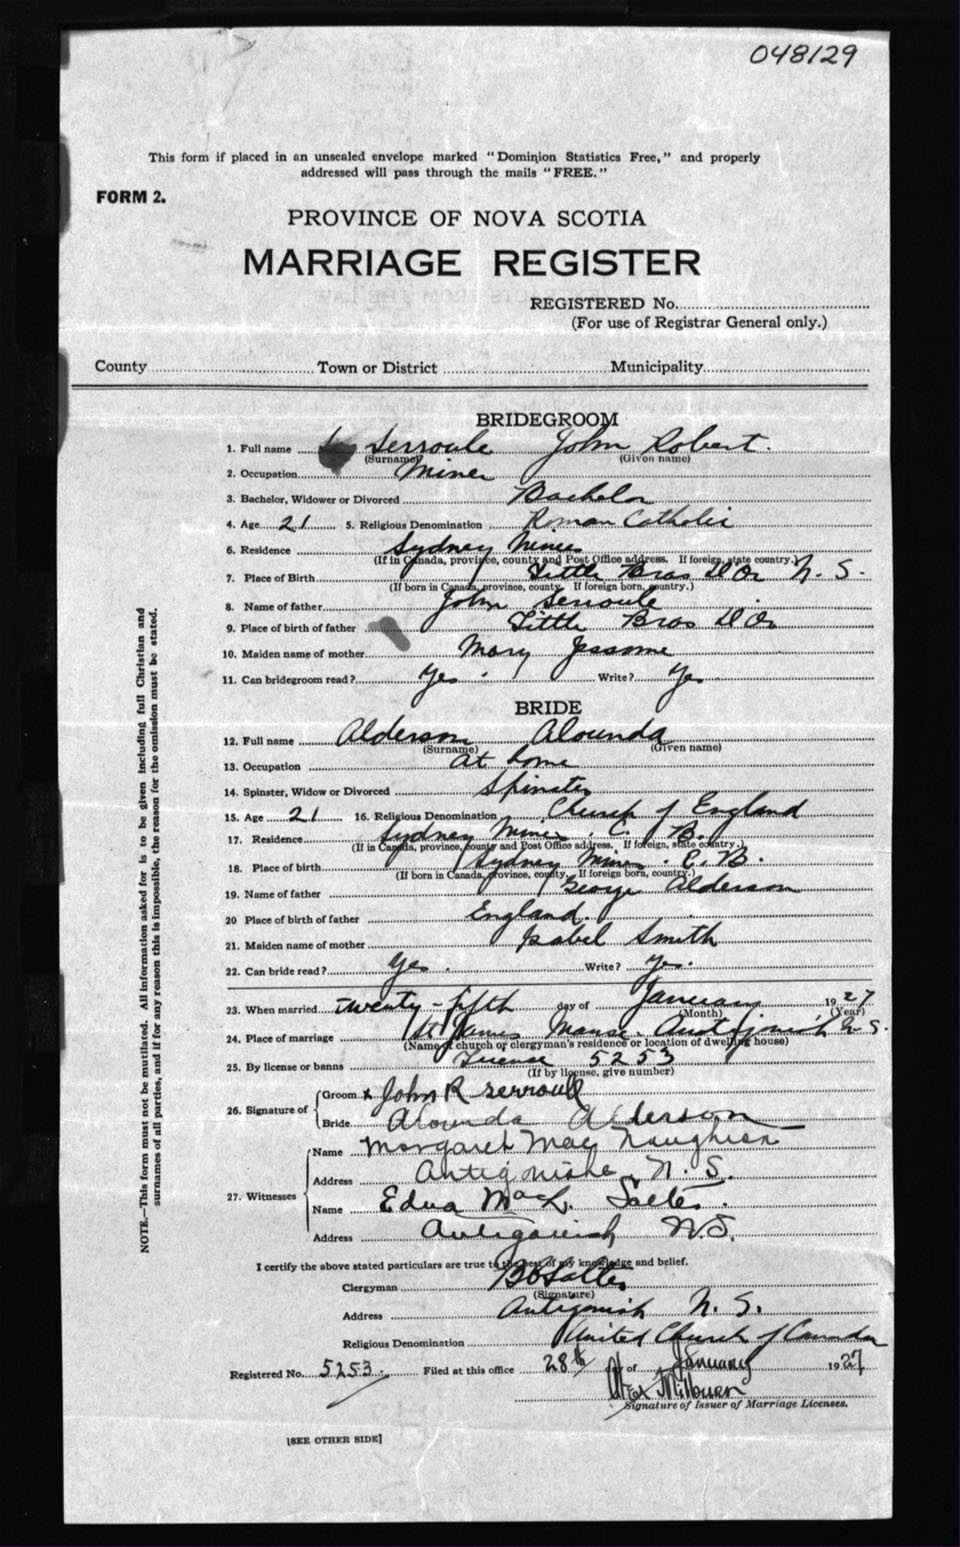 048129
This form if placed in an unsealed envelope marked "Dominion Statistics Free," and properly
addressed will pass through the mails "FREE."
FORM 2.
PROVINCE OF NOVA SCOTIA
MARRIAGE REGISTER
REGISTERED No.
(For use of Registrar General only.)
County Town or District Municipality
BRIDEGROOM
1. Full name Serroule John Robert.
(Surname) (Given name)
2. Occupation Miner
3. Bachelor, Widower or Divorced Bachelor
4. Age 21 5. Religious Denomination Roman Catholic
6. Residence Sydney Mines
(If in Canada, province, county and Post Office address. If foreign, state country.)
7. Place of Birth Little Bras D'Or N. S.
(If born in Canada, province, county. If foreign born, country.)
8. Name of father John Serroule
9. Place of birth of father Little Bras D'Or
10. Maiden name of mother Mary Jessome
11. Can bridegroom read? Yes. Write? Yes
BRIDE
12. Full name Alderson Alounda
(Surname) (Given name)
13. Occupation at home
14. Spinster, Widow or Divorced Spinster
15. Age 21 16. Religious Denomination Church of England
17. Residence Sydney Mines. C. B.
(If in Canada, province, county and Post Office address. If foreign, state country.)
18. Place of birth Sydney Mines. C. B.
(If born in Canada, province, county. If foreign born, country.)
19. Name of father George Alderson
20 Place of birth of father England.
21. Maiden name of mother Isabel Smith
22. Can bride read? Yes. Write? Yes.
23. When married twenty-fifth day of January 1927
(Month) (Year)
24. Place of marriage St James Manse. Antigonish N. S.
(Name of church or clergyman's residence or location of dwelling house)
25. By license or banns License 5253
(If by license, give number)
26. Signature of Groom x John R Serroule
Bride Alounda Alderson
27. Witnesses Name Margaret Mac Naughton
Address Antigonishe N. S.
Name Edna MacL. Salter.
Address Antigonish N.S.
I certify the above stated particulars are true to the best of my knowledge and belief.
Clergyman Salter
(Signature)
Address Antigonish N. S.
Religious Denomination United Church of Canada
Registered No. 5253. Filed at this office 28th day of January 1927
Milburn
Signature of Issuer of Marriage Licenses.
[SEE OTHER SIDE]
NOTE.—This form must not be mutilated. All information asked for is to be given including full Christian and
surnames of all parties, and if for any reason this is impossible, the reason for the omission must be stated.